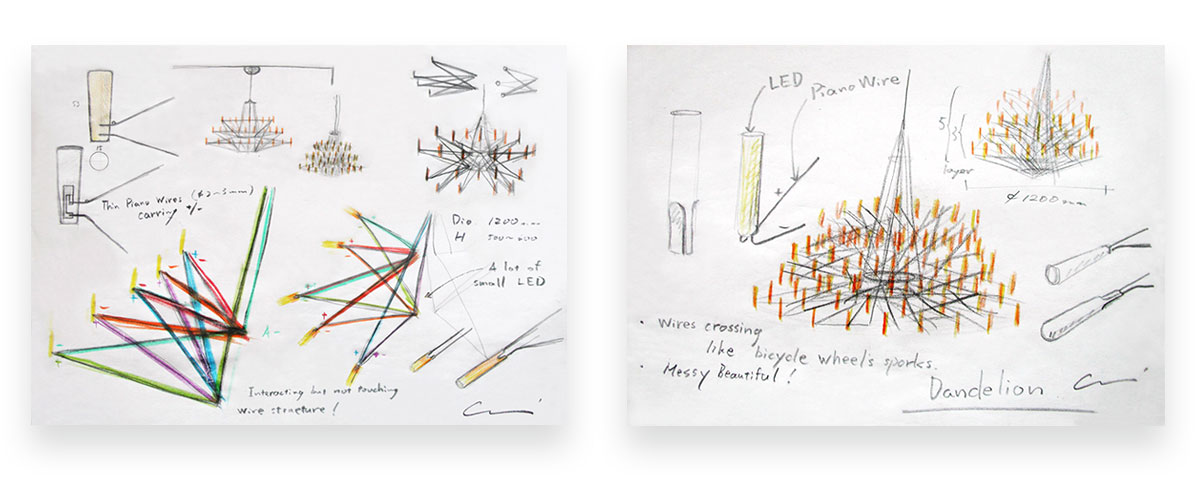 Thin Piano Wires (ϕ2~3mm)
carring +/-
Dia 1200mm
H
A lot of
small LED
Interacting but not touching
wire structure!
LED
Piano Wire
5
3
layer
ϕ1200mm
· Wires crossing
like bicycle wheels sporks.
· Messy Beautiful!
Dandelion